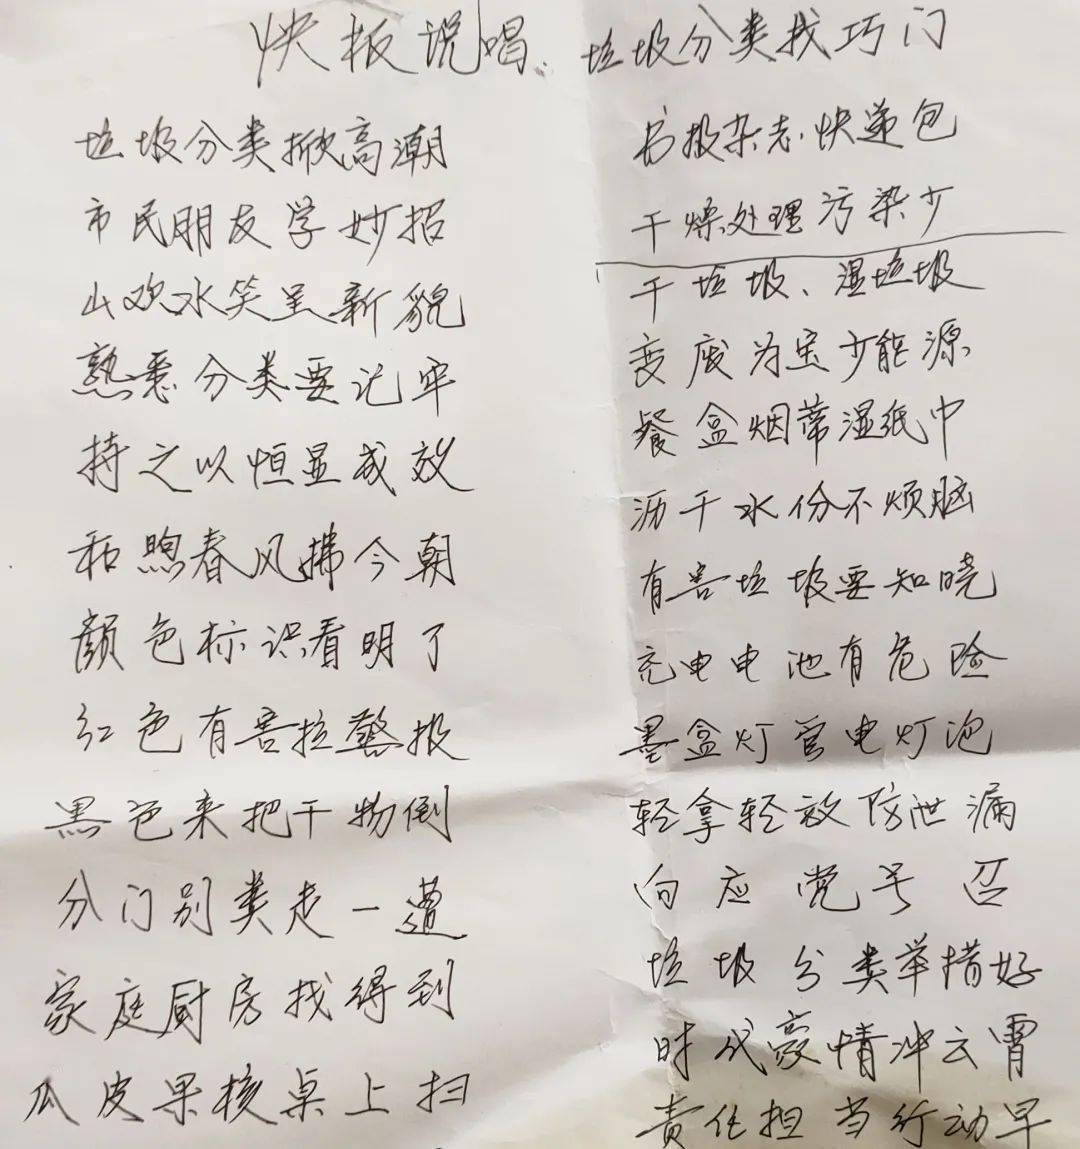 快板说唱、垃圾分类找巧门
垃圾分类掀高潮
市民朋友学妙招
山欢水笑呈新貌
熟悉分类要记牢
持之以恒显成效
和煦春风拂今朝
颜色标识看明了
红色有害拉警报
黑色来把干物倒
分门别类走一遭
家庭厨房找得到
瓜皮果核桌上扫
书报杂志快递包
干燥处理污染少
干垃圾、湿垃圾
变废为宝少能源
餐盒烟蒂湿纸巾
沥干水份不烦脑
有害垃圾要知晓
充电电池有危险
墨盒灯管电灯泡
轻拿轻放防泄漏
向应党号召
垃圾分类举措好
时代豪情冲云霄
责任担当行动早